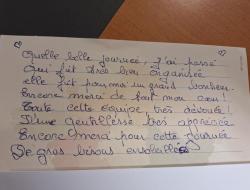 Quelle belle journée, j'ai passé
Qui fût très bien organisée
elle fût pour moi un grand bonheur.
Encore merci de tout mon cœur!
Toute cette équipe très dévouée!
D'une gentillesse très appréciée
Encore merci pour cette journée
De gros bisous ensoleillés